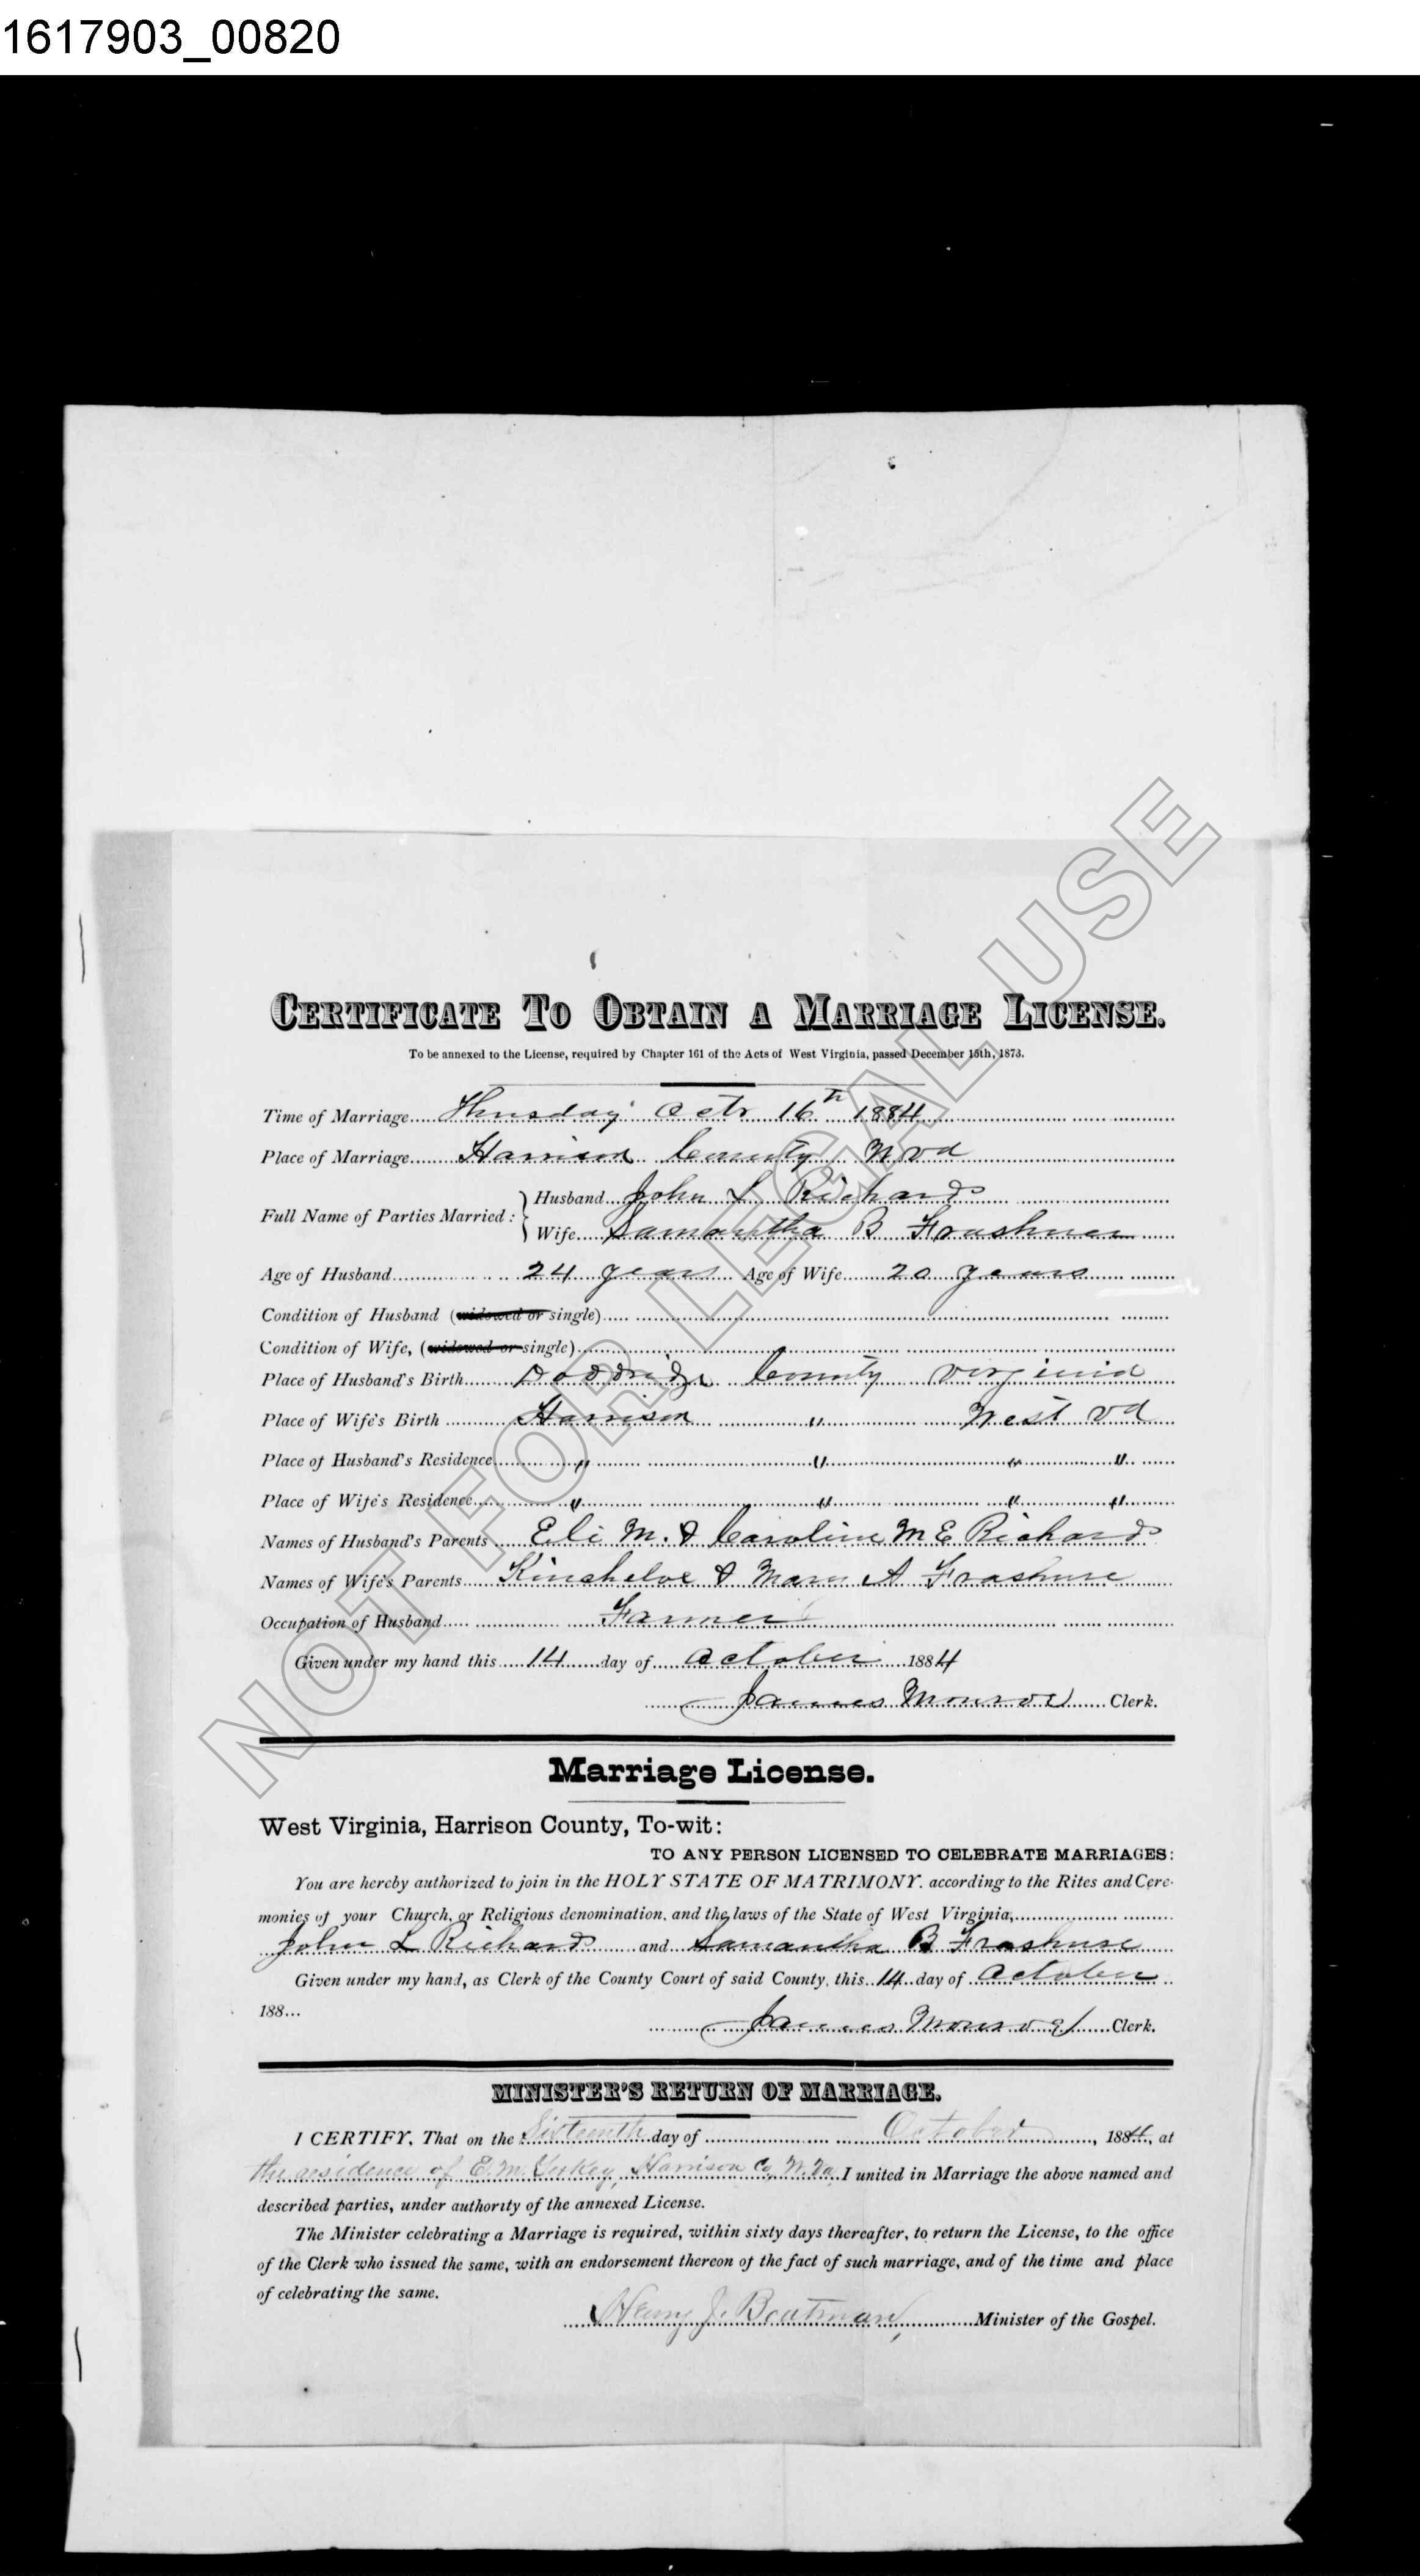 1617903_00820
CERTIFICATE TO OBTAIN A MARRIAGE LICENSE.
To be annexed to the License, required by Chapter 161 of the Acts of West Virginia, passed December 15th, 1873.
Time of Marriage Thursday Octr 16th 1884
Place of Marriage Harrison County W Va
Full Name of Parties Married: Husband John L Richards
Wife Samantha B Frashure
Age of Husband 24 years Age of Wife 20 years
Condition of Husband (widowed or single)
Condition of Wife, (widowed or single)
Place of Husband's Birth Doddridge County Virginia
Place of Wife's Birth Harrison " West Va
Place of Husband's Residence " " " "
Place of Wife's Residence " " " "
Names of Husband's Parents Eli M. & Caroline M E Richards
Names of Wife's Parents Kincheloe & Mary A Frashure
Occupation of Husband Farmer
Given under my hand this 14 day of October 1884
James Monroe Clerk.
Marriage License.
West Virginia, Harrison County, To-wit:
TO ANY PERSON LICENSED TO CELEBRATE MARRIAGES:
You are hereby authorized to join in the HOLY STATE OF MATRIMONY, according to the Rites and Cere-
monies of your Church, or Religious denomination, and the laws of the State of West Virginia,
John L Richards and Samantha B Frashure
Given under my hand, as Clerk of the County Court of said County, this 14 day of October
188...
James Monroe Clerk.
MINISTER'S RETURN OF MARRIAGE.
I CERTIFY, That on the Sixteenth day of October, 1884, at
the residence of E. M. Harrison Co, W. Va, I united in Marriage the above named and
described parties, under authority of the annexed License.
The Minister celebrating a Marriage is required, within sixty days thereafter, to return the License, to the office
of the Clerk who issued the same, with an endorsement thereon of the fact of such marriage, and of the time and place
of celebrating the same.
Henry J. Boatman, Minister of the Gospel.
NOT FOR LEGAL USE